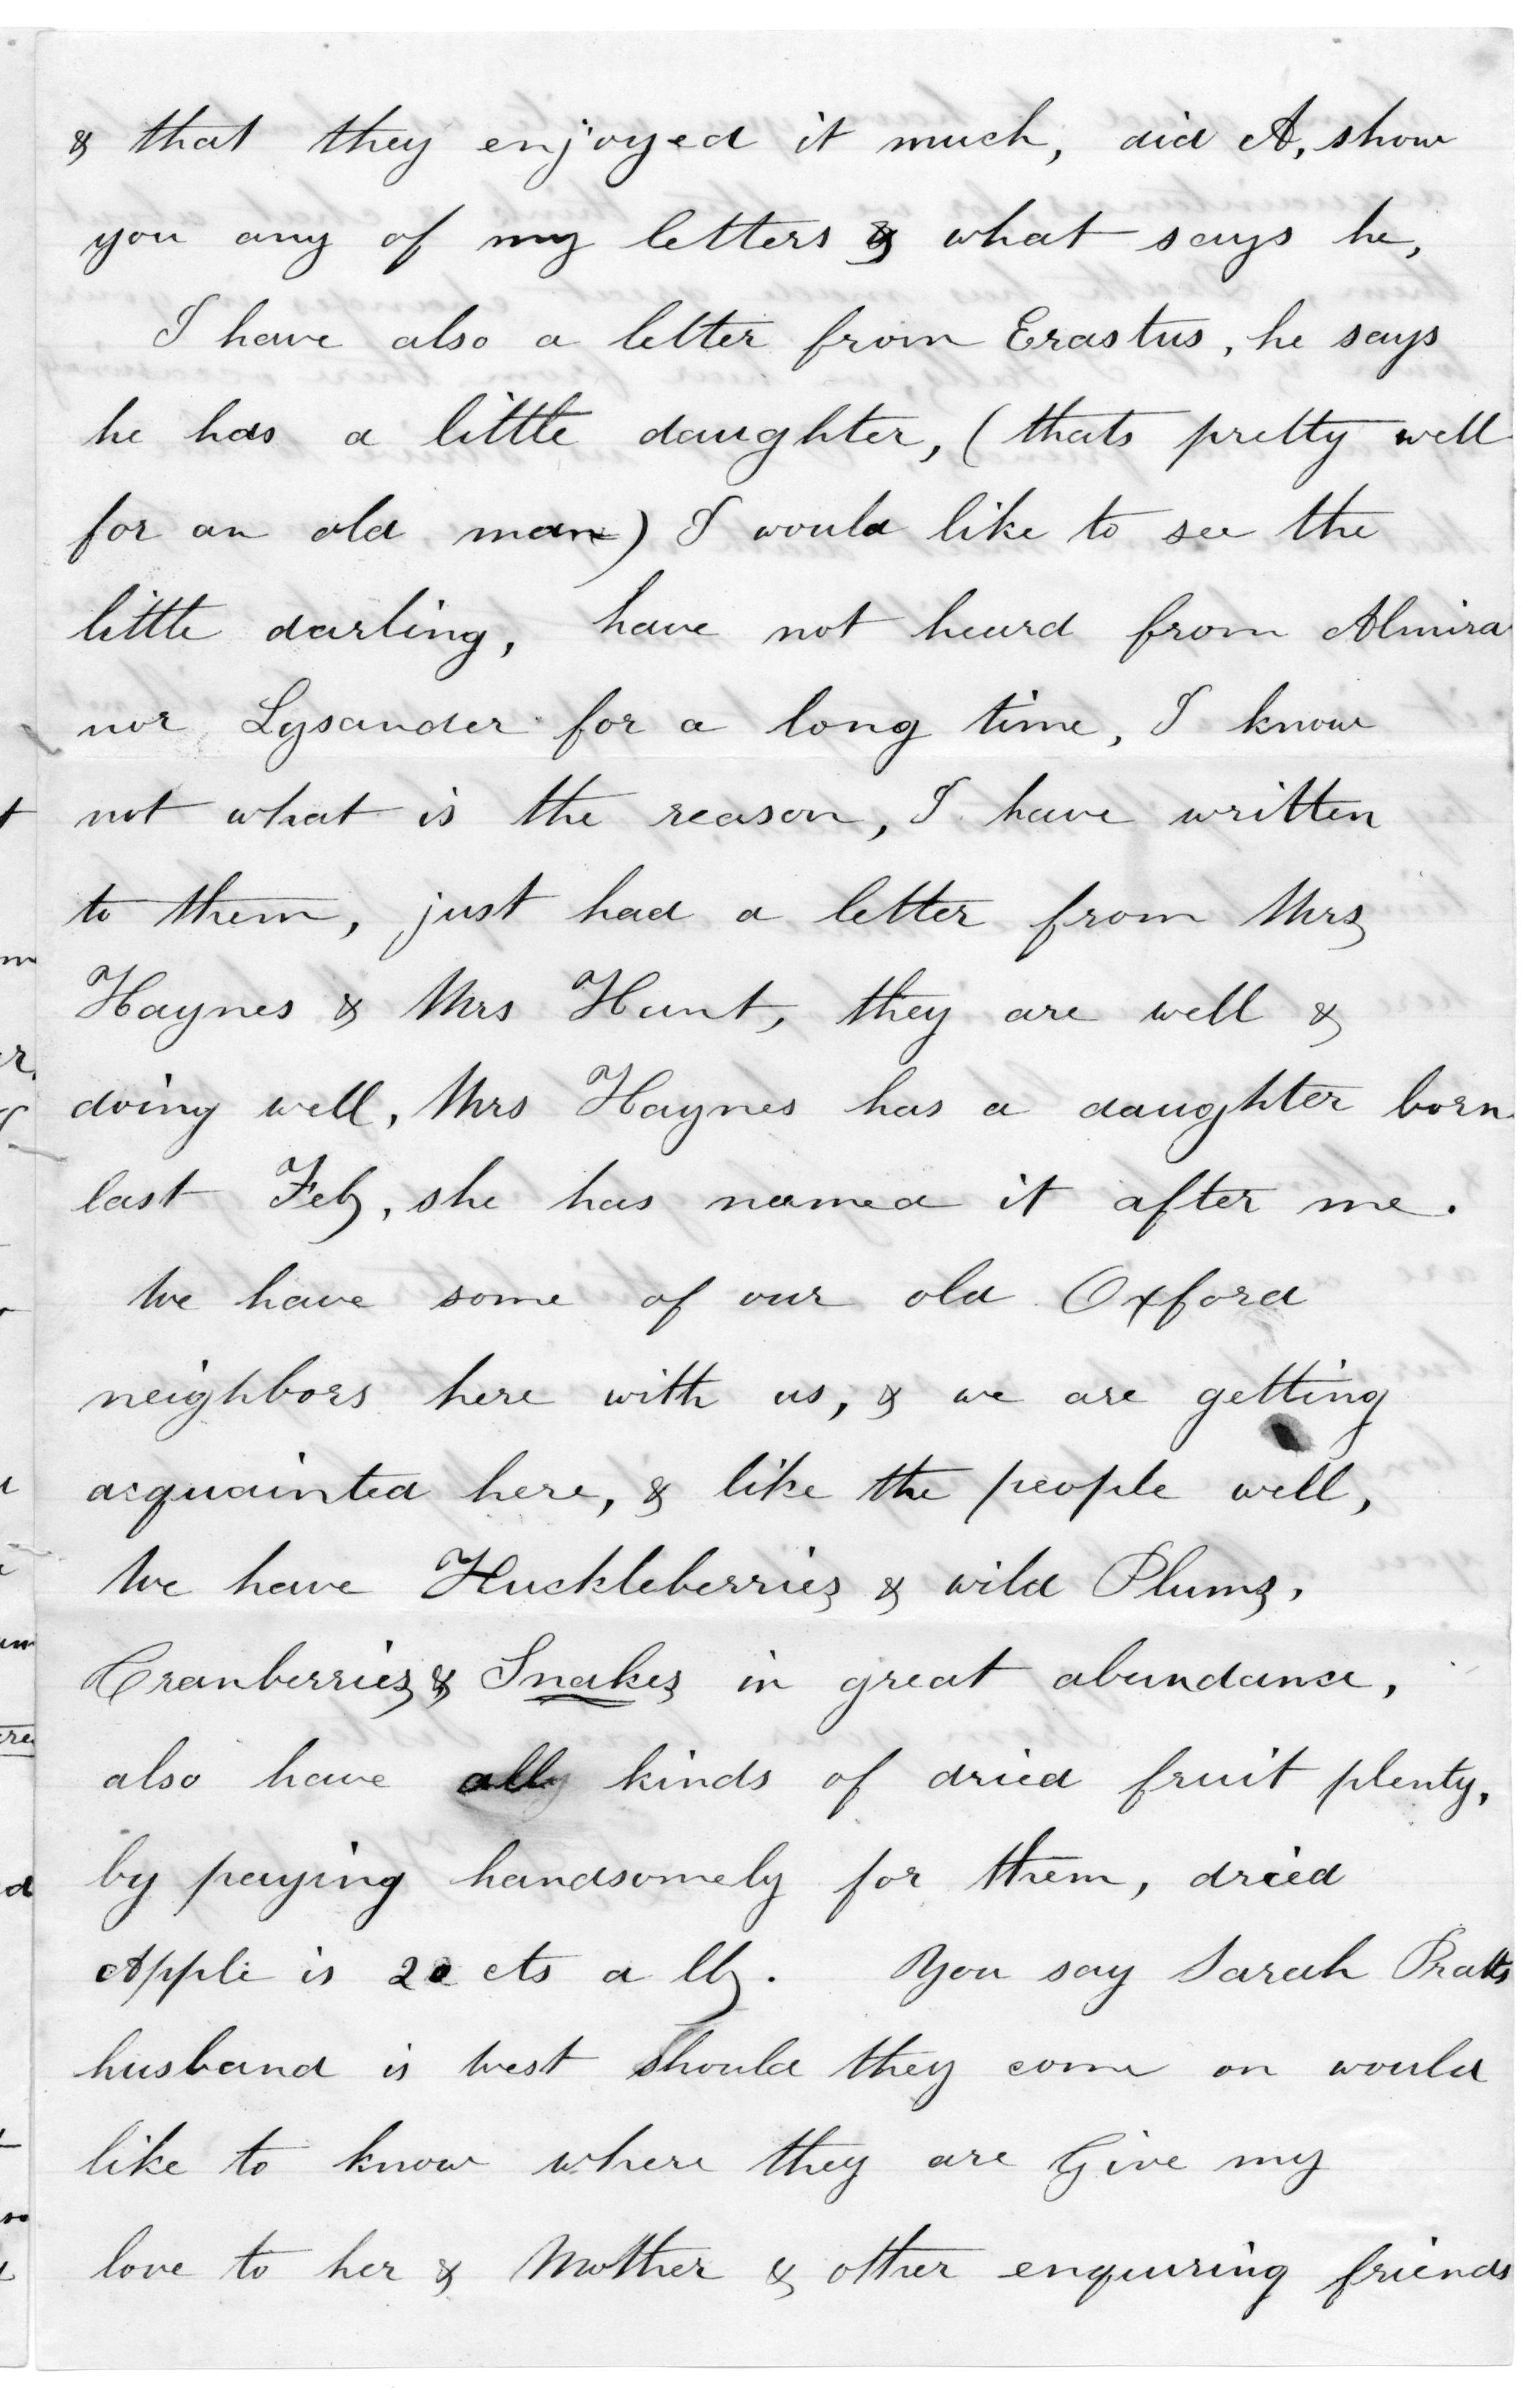 & that they enjoyed it much, did A, show
you any of my letters & what says he,
I have also a letter from Erastus, he says
he has a little daughter, (thats pretty well
for an old man) I would like to see the
little darling, have not heard from Almira
nor Lysander for a long time, I know
not what is the reason, I have written
to them, just had a letter from Mrs
Haynes & Mrs Hunt, they are well &
doing well, Mrs Haynes has a daughter born
last Feb, she has named it after me.
We have some of our old Oxford
neighbors here with us, & we are getting
acquainted here, & like the people well,
We have Huckleberries & wild Plums,
Cranberries & Snakes in great abundance,
also have all kinds of dried fruit plenty,
by paying handsomely for them, dried
Apple is 20 cts a lb. You say Sarah Pratts
husband is West should they come on would
like to know where they are Give my
love to her & Mother & other enquiring friends